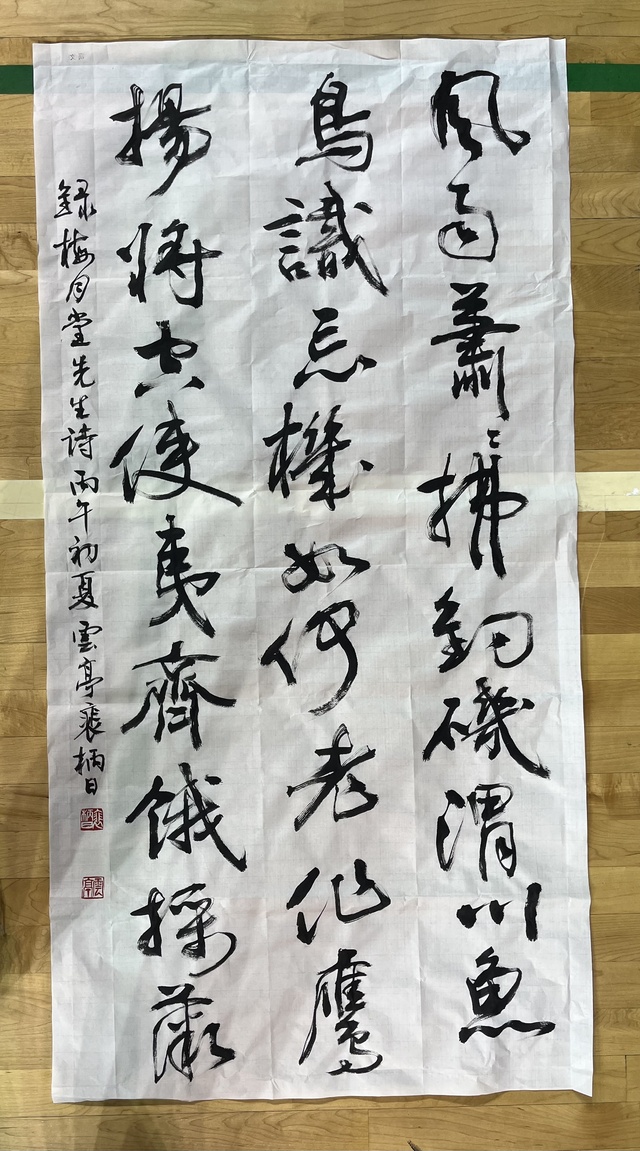 風雨蕭〻拂釣磯渭川魚
鳥識忘機如何老作鷹
揚將空使夷齊餓採薇
録梅月堂先生詩 丙午初夏 雲亭裵柄日
雲亭